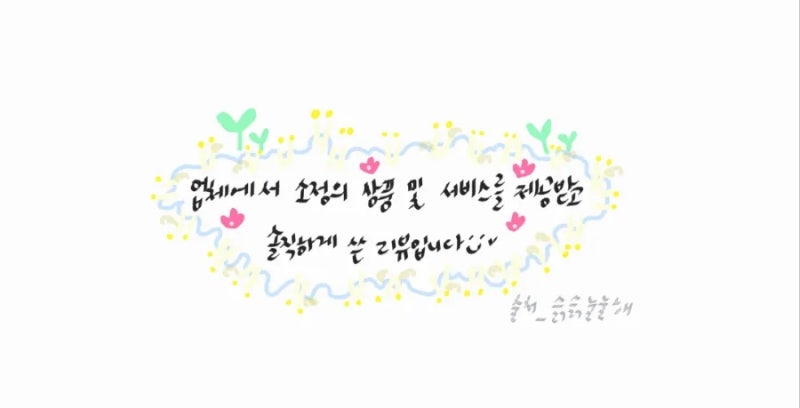 업체에서 소정의 상품 및 서비스를 제공받고
솔직하게 쓴 리뷰입니다
출처_